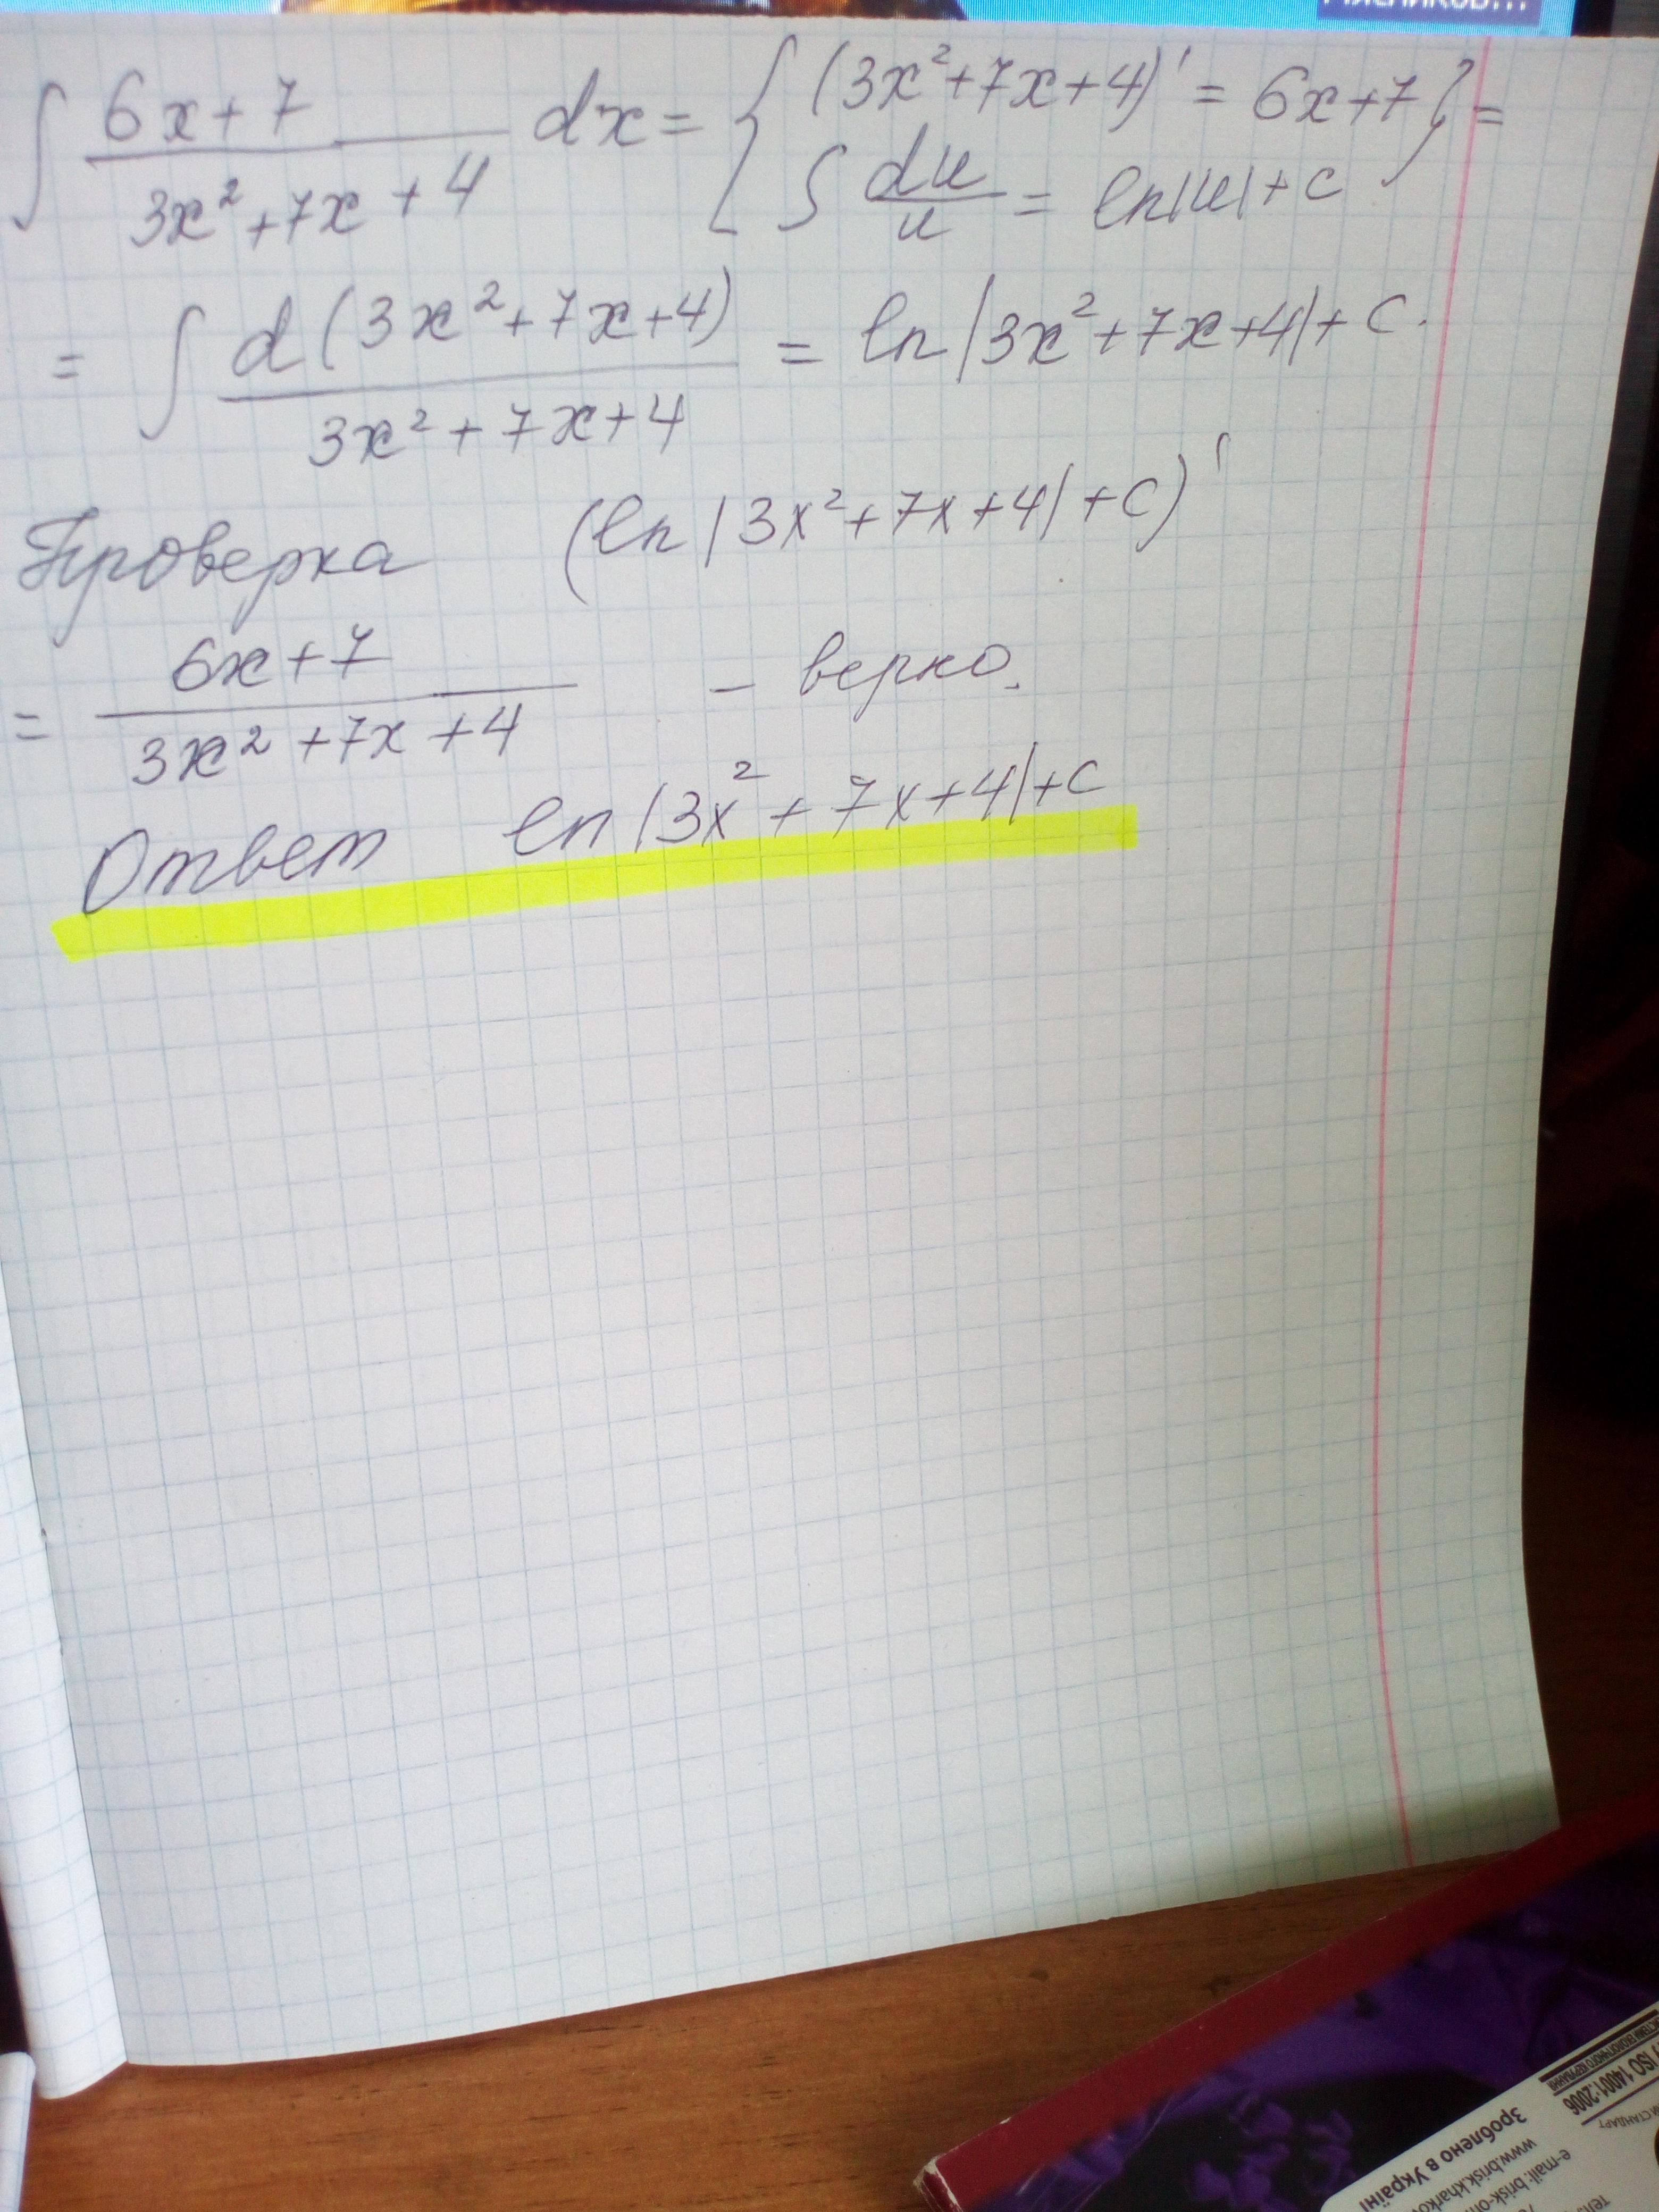 ∫ (6x+7)/(3x²+7x+4) dx = { (3x²+7x+4)' = 6x+7 } =
∫ du/u = ln|u|+c
= ∫ d(3x²+7x+4)/(3x²+7x+4) = ln|3x²+7x+4|+C.
Проверка (ln|3x²+7x+4|+C)'
= (6x+7)/(3x²+7x+4) - верно.
Ответ ln|3x²+7x+4|+C
ISO 14001:2006
Зроблено в Україні
www.brisk.kharkov
e-mail: brisk